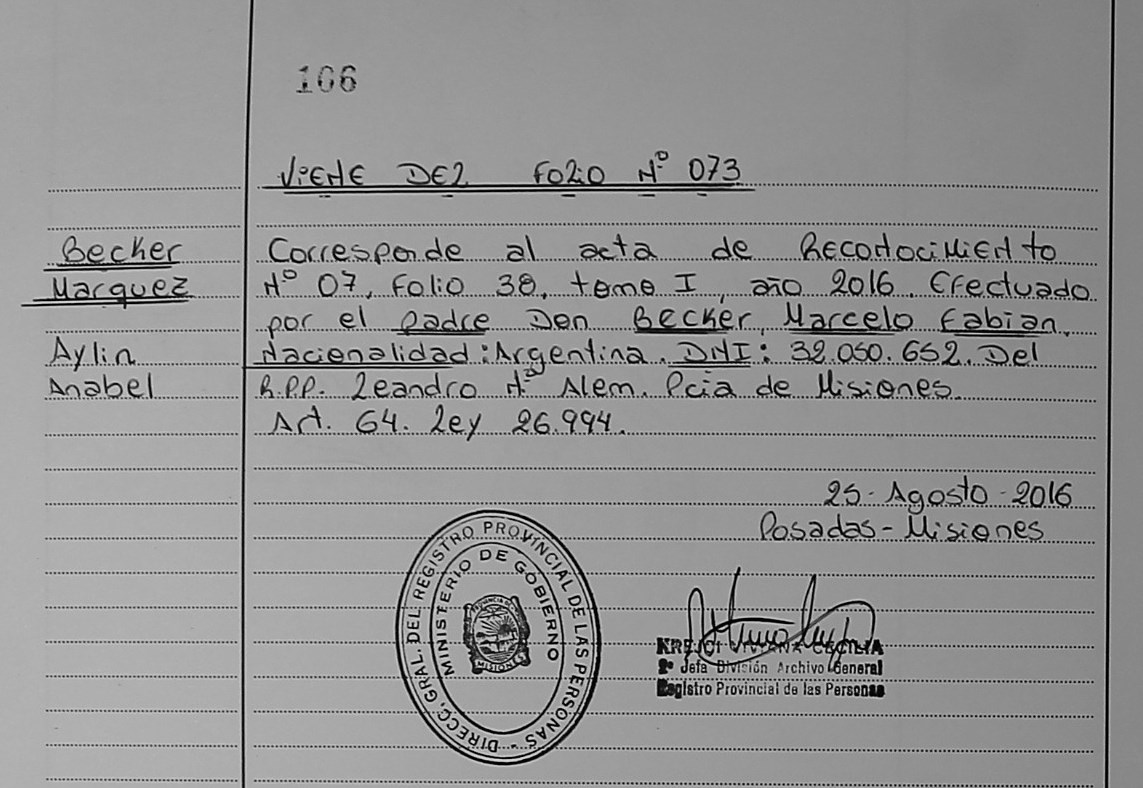 106
VIENE DEL FOLIO Nº 073
Becker
Marquez
Aylin
Anabel
Corresponde al acta de Reconocimiento
Nº 07, Folio 38, tomo I, año 2016. Efectuado
por el padre Don Becker, Marcelo Fabian.
Nacionalidad: Argentina. DNI: 32.050.652. Del
R.P.P. Leandro Nº Alem. Pcia de Misiones.
Art. 64. Ley 26.994.
25-Agosto-2016
Posadas-Misiones
DIRECC. GRAL. DEL REGISTRO PROVINCIAL DE LAS PERSONAS
MINISTERIO DE GOBIERNO
MISIONES
KREJCI CECILIA
2º Jefa División Archivo General
Registro Provincial de las Personas